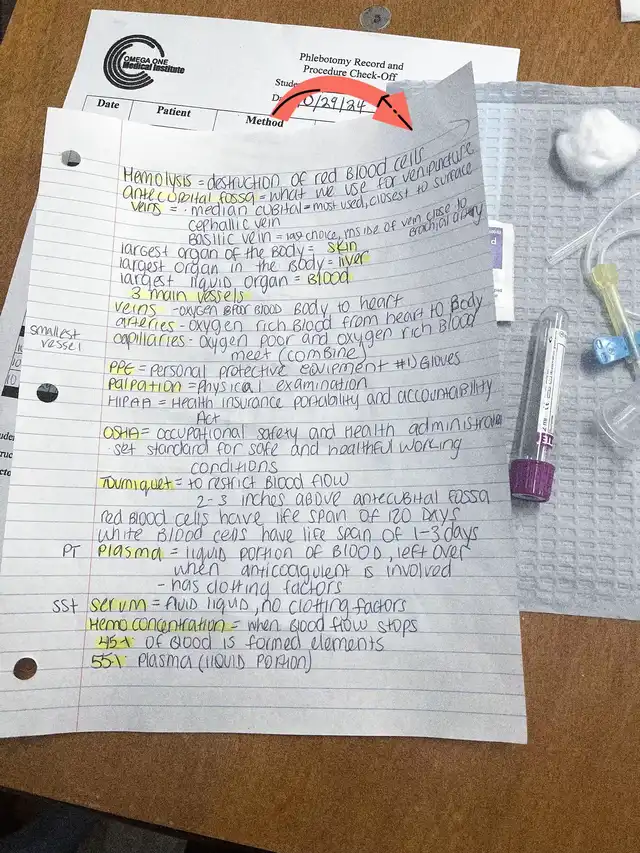 OMEGA ONE
Medical Institute
Phlebotomy Record and
Procedure Check-Off
Date
Patient
Method
0/29/24
Hemolysis = destruction of red Blood cells
antecubital fossa = what we use for venipuncture
veins = - median cubital = most used, closest to surface
cephallic vein
Basilic vein = last choice, inside of vein close to
brachial artery
largest organ of the Body = skin
largest organ in the Body = liver
largest liquid organ = Blood
3 main vessels
veins - oxygen poor Blood Body to heart
arteries - oxygen rich Blood from heart to Body
smallest
vessel
capillaries - oxygen poor and oxygen rich Blood
meet (combine)
PPE = personal protective equipment #1) Gloves
Palpation = Physical examination
HIPAA = Health insurance portability and accountability
Act
OSHA = occupational safety and Health administration
set standard for safe and healthful working
conditions
Tourniquet = to restrict Blood flow
2-3 inches above antecubital fossa
red Blood cells have life span of 120 days
white Blood cells have life span of 1-3 days
PT Plasma = liquid portion of Blood, left over
when anticoagulent is involved
- has clotting factors
SST serum = fluid liquid, no clotting factors
Hemo concentration = when Blood flow stops
45% of Blood is formed elements
55% Plasma (liquid portion)